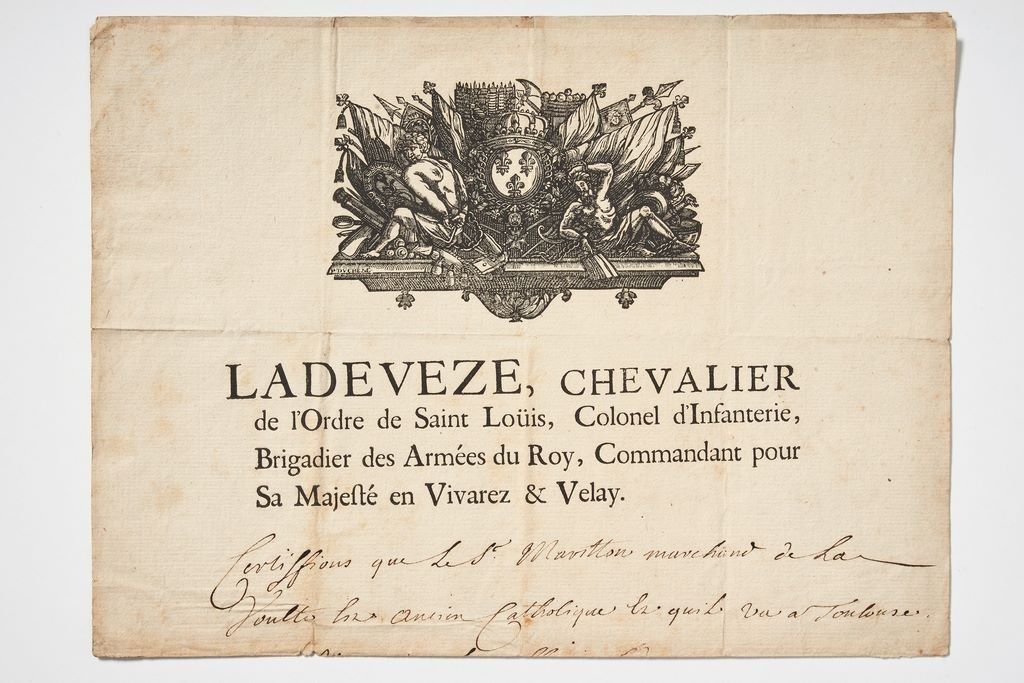 LADEVEZE, CHEVALIER
de l'Ordre de Saint Loüis, Colonel d'Infanterie,
Brigadier des Armées du Roy, Commandant pour
Sa Majeſté en Vivarez & Velay.
Certiffions que Le Sr. Maritton marchand de La
Voulte Est ancien Catholique Et quil va a Toulouse.